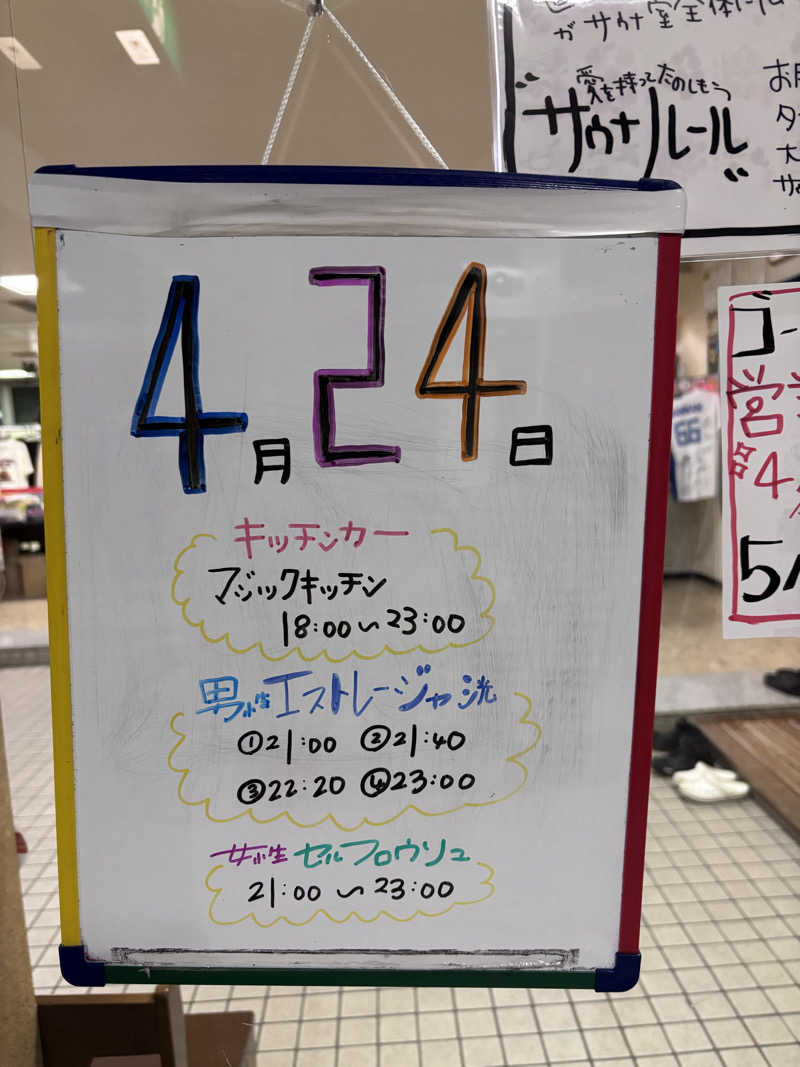 がサウナ室全体に
愛を持ってたのしもう
"サウナルール"
4月24日
キッチンカー
マジックキッチン
18:00〜23:00
男性エストレージャ洸
①21:00 ②21:40
③22:20 ④23:00
女性セルフロウリュ
21:00〜23:00
ゴー
営業
4
5/
66